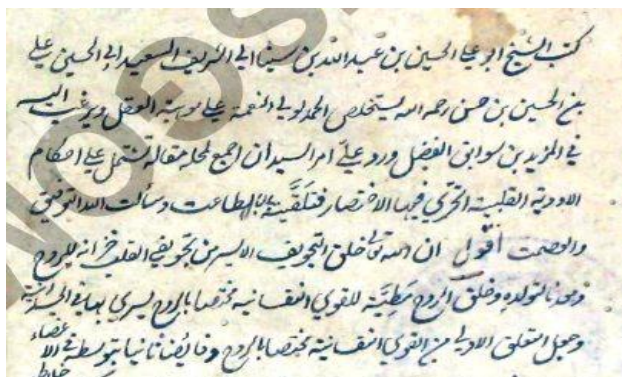 كتب الشيخ ابو علي الحسين بن عبد الله بن سينا الي الشريف السعيد ابي الحسين علي
بن الحسين بن حسن رحمه الله يستخلص الحمد لولي النعمة علي موهبة العقل ويرغب اليه
في المزيد من سوابق الفضل ورد علي امر السيد ان اجمع لمجلسه مقالة تشتمل علي احكام
الادوية القلبية اتحري فيها الاختصار فتلقيته بالطاعت وسألت الله التوفيق
والعصمت اقول ان الله تعالي خلق التجويف الايسر من تجويفي القلب خزانة للروح
ومعدنا لتولده وخلق الروح مطية للقوي النفسانية تختص بالروح يسري بها في الجسدانية
وجعل التعلق الاولي من القوي النفسانية مختصا بالروح وفايضا ثانيا بتوسطه في الاعضاء